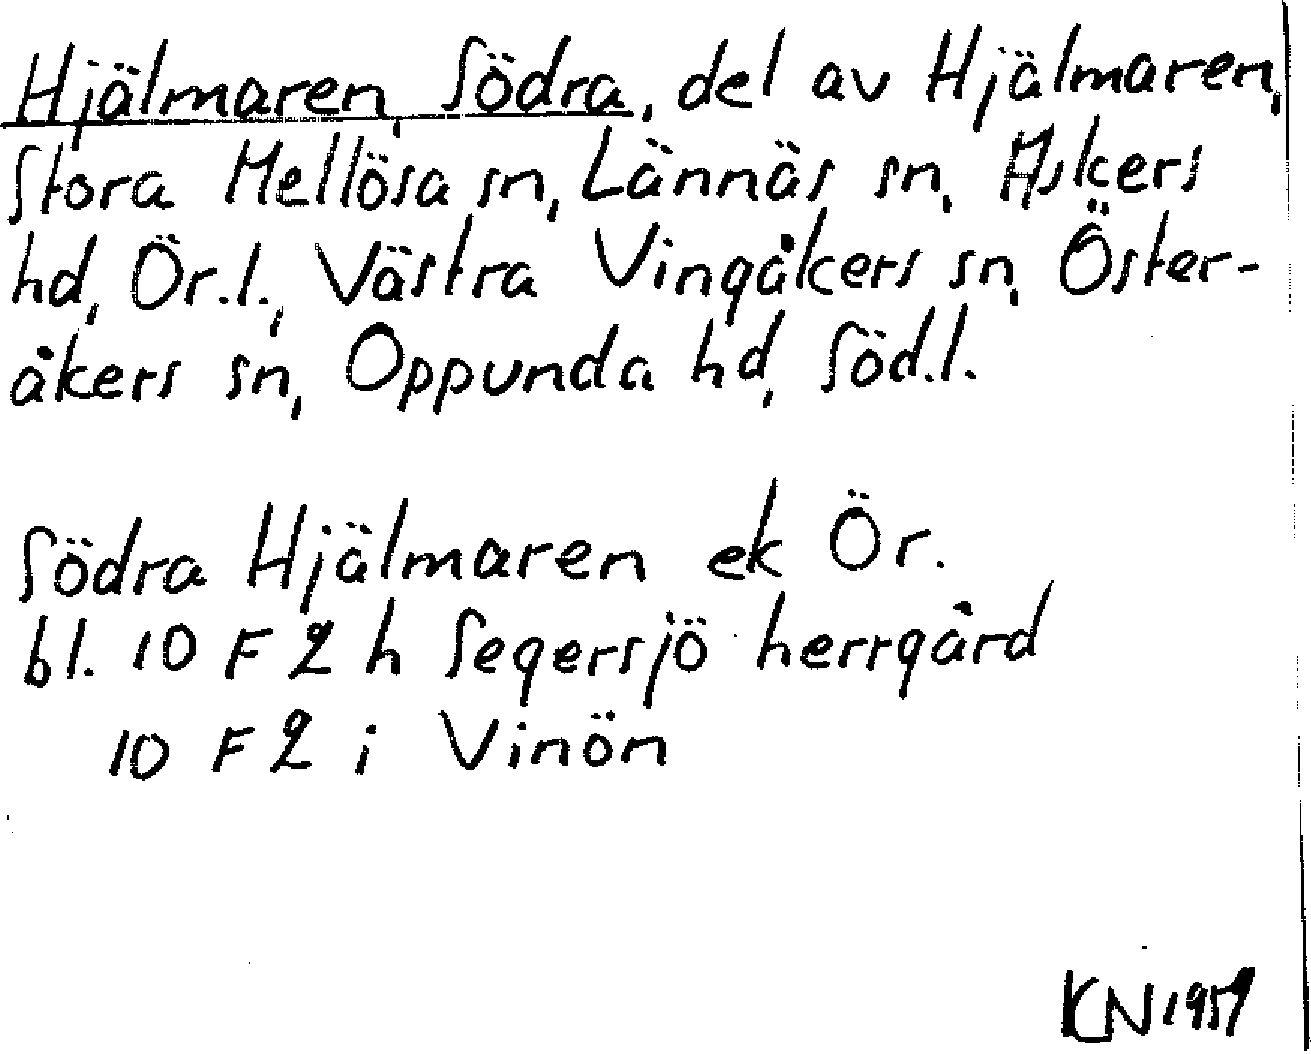 Hjälmaren, Södra, del av Hjälmaren,
Stora Mellösa sn, Lännäs sn, Askers
hd, Ör.l., Västra Vingåkers sn, Öster-
åkers sn, Oppunda hd, Söd.l.
Södra Hjälmaren ek Ör.
bl. 10 F 2 h Segersjö herrgård
10 F 2 i Vinön
KN